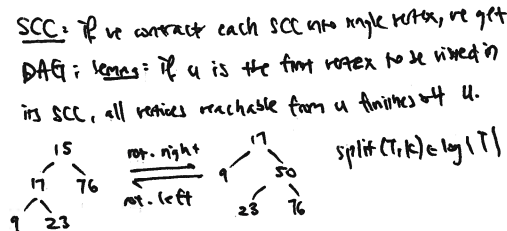 SCC: if we contract each SCC into single vertex, we get
DAG; lemma: if u is the first vertex to be visited in
its SCC, all vertices reachable from u finishes u.
15 rot. right 17
17 76 rot. left 9 50 split(T,k) ∈ log|T|
9 23 23 76